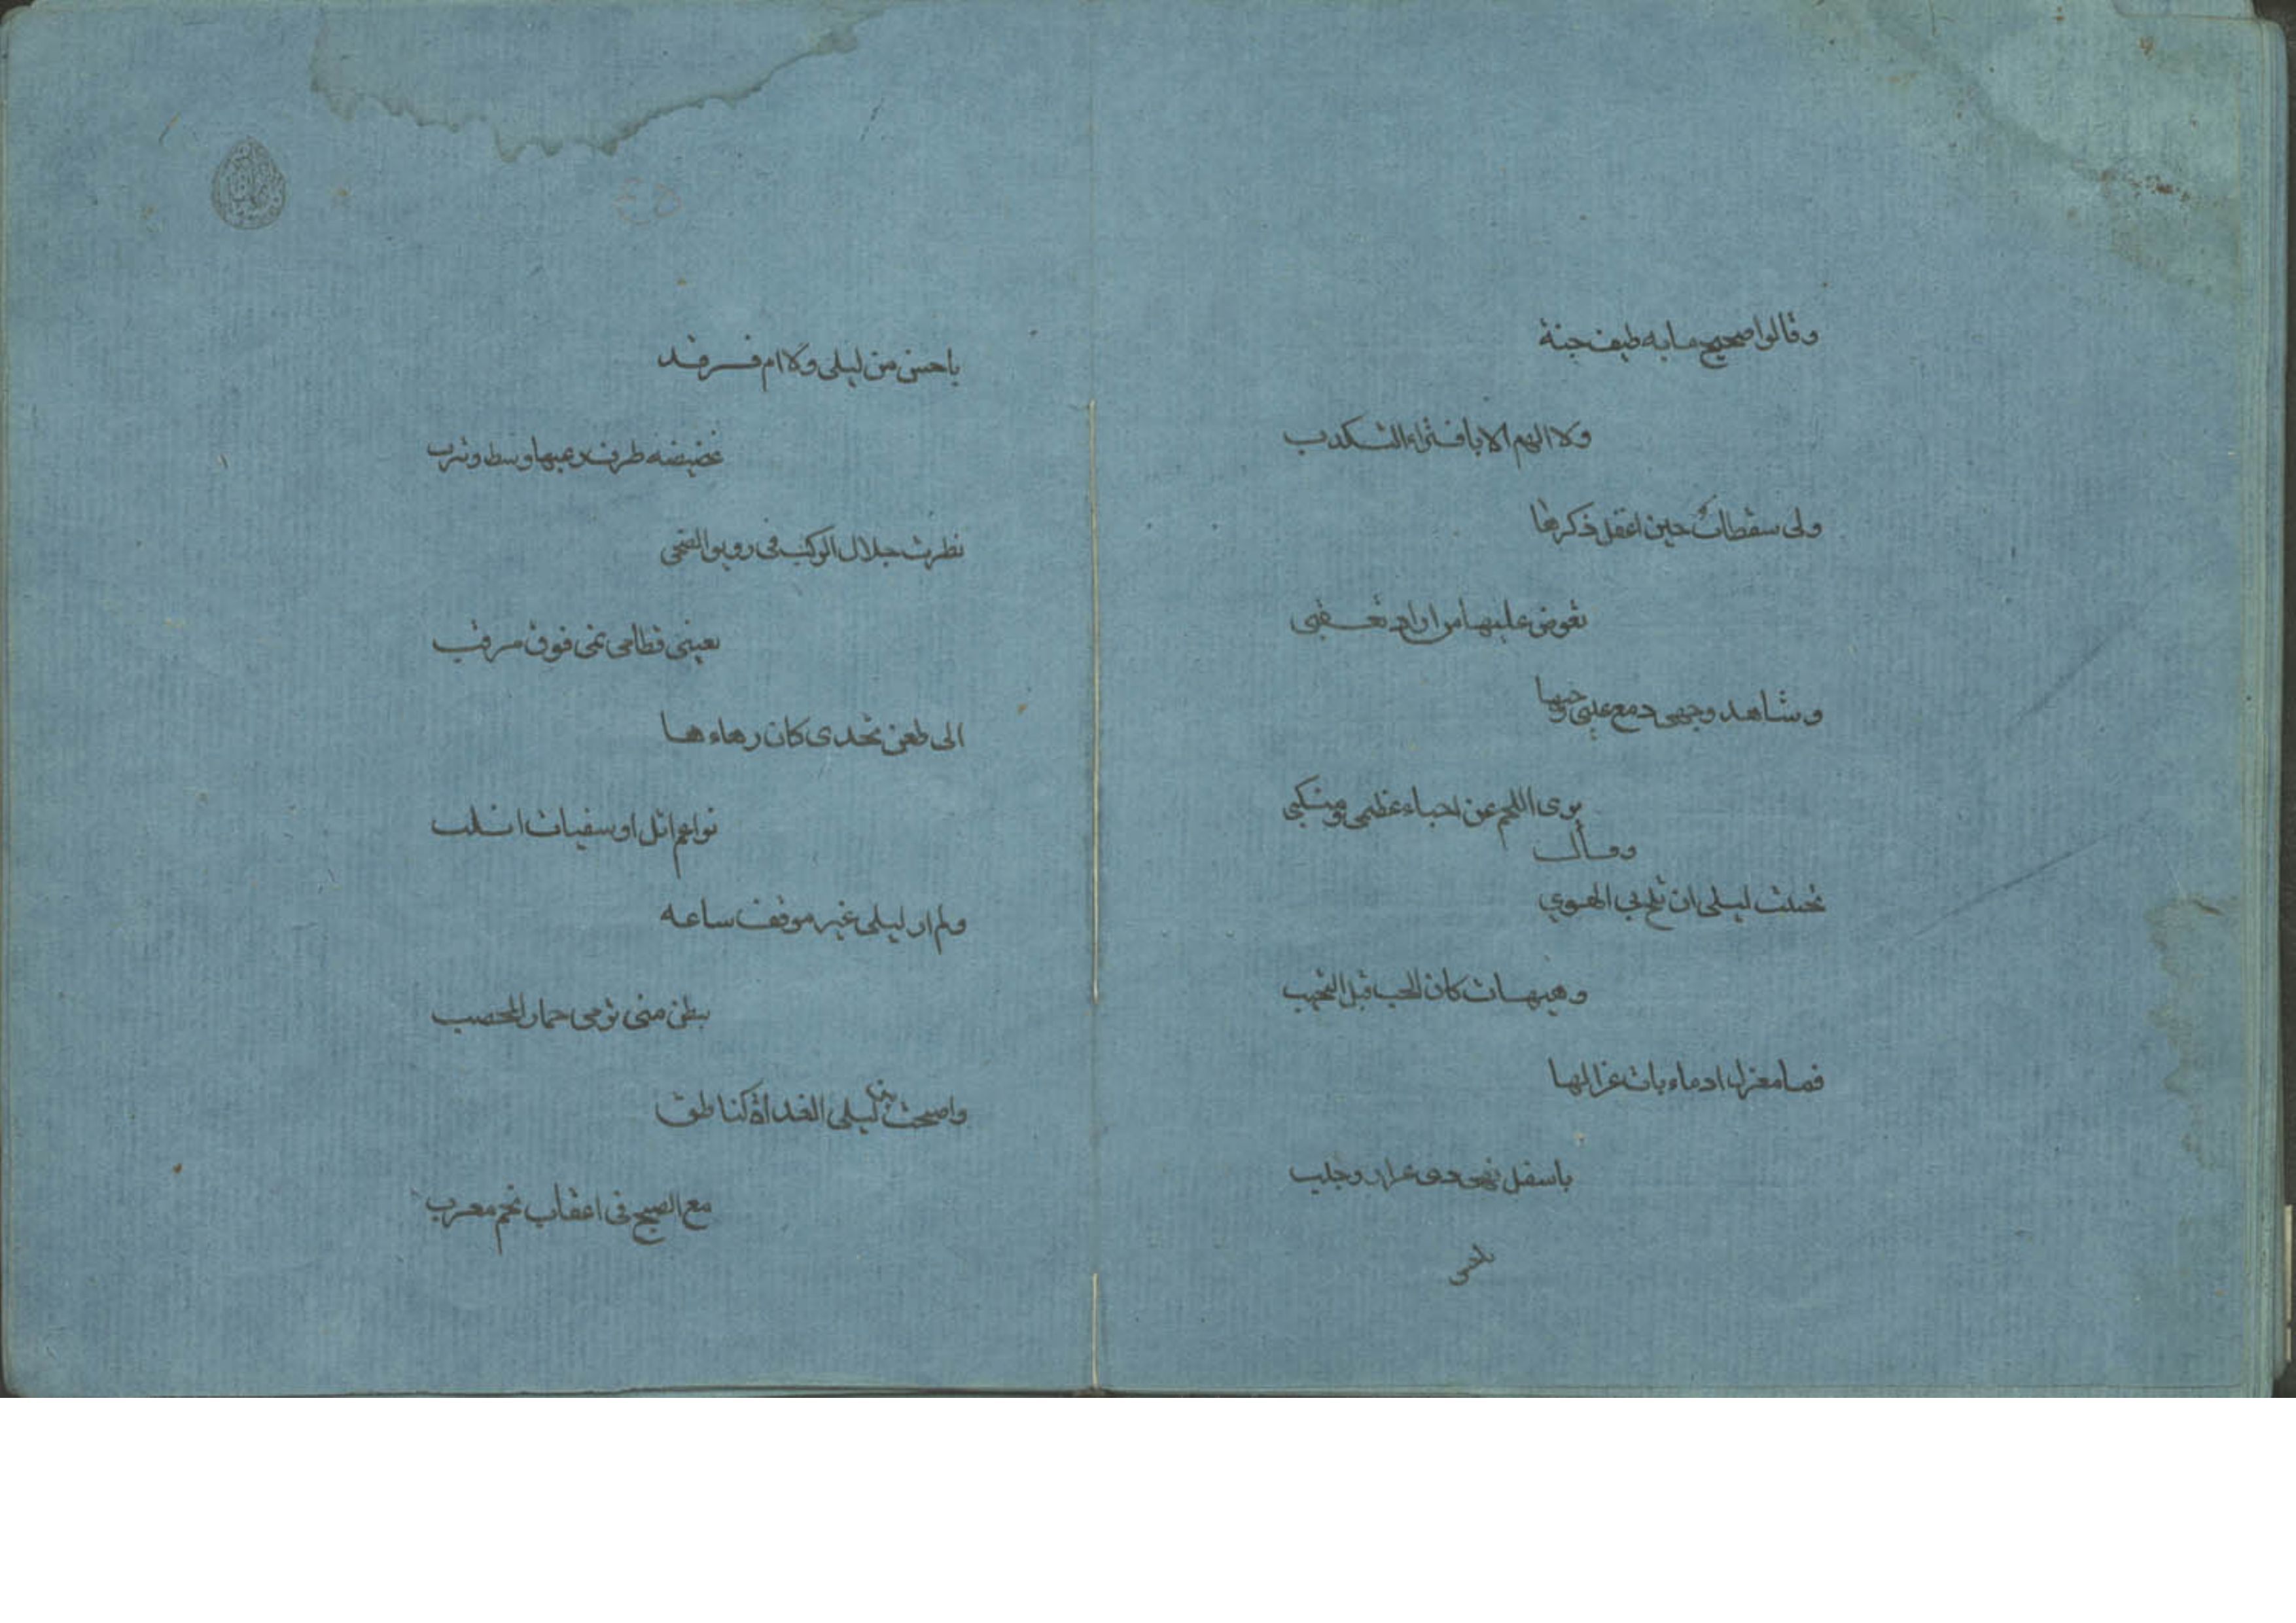 وقالوا صحيح مابه طيف جنة
ولا الهم الا بافتراء التكذب
ولى سقطات حين اغفل ذكرها
تغوض عليها من اراد تعقبى
وشاهد وجهى دمع عينى وحبها
برى اللحم عن احناء عظمى ومنكبى
وقال
تجنبت ليلى ان تلج بى الهوي
وهيهات كان الحب قبل التجنب
فما مغزل ادماء بات غزالها
باسفل نهى دى عرار وحلب
باحسن من ليلى ولا ام فرقد
غضيضه طرف رعيها وسط ربرب
نظرت خلال الركب فى رونق الضحى
بعينى قطامى نمى فوق مرقب
الى ظعن تحدى كان زهاءها
نواعم اثل او سفيات اثلب
ولم ار ليلى غير موقف ساعه
ببطن منى ترمى جمار المحصب
واصبحت من ليلى الغداة كناظر
مع الصبح فى اعقاب نجم مغرب